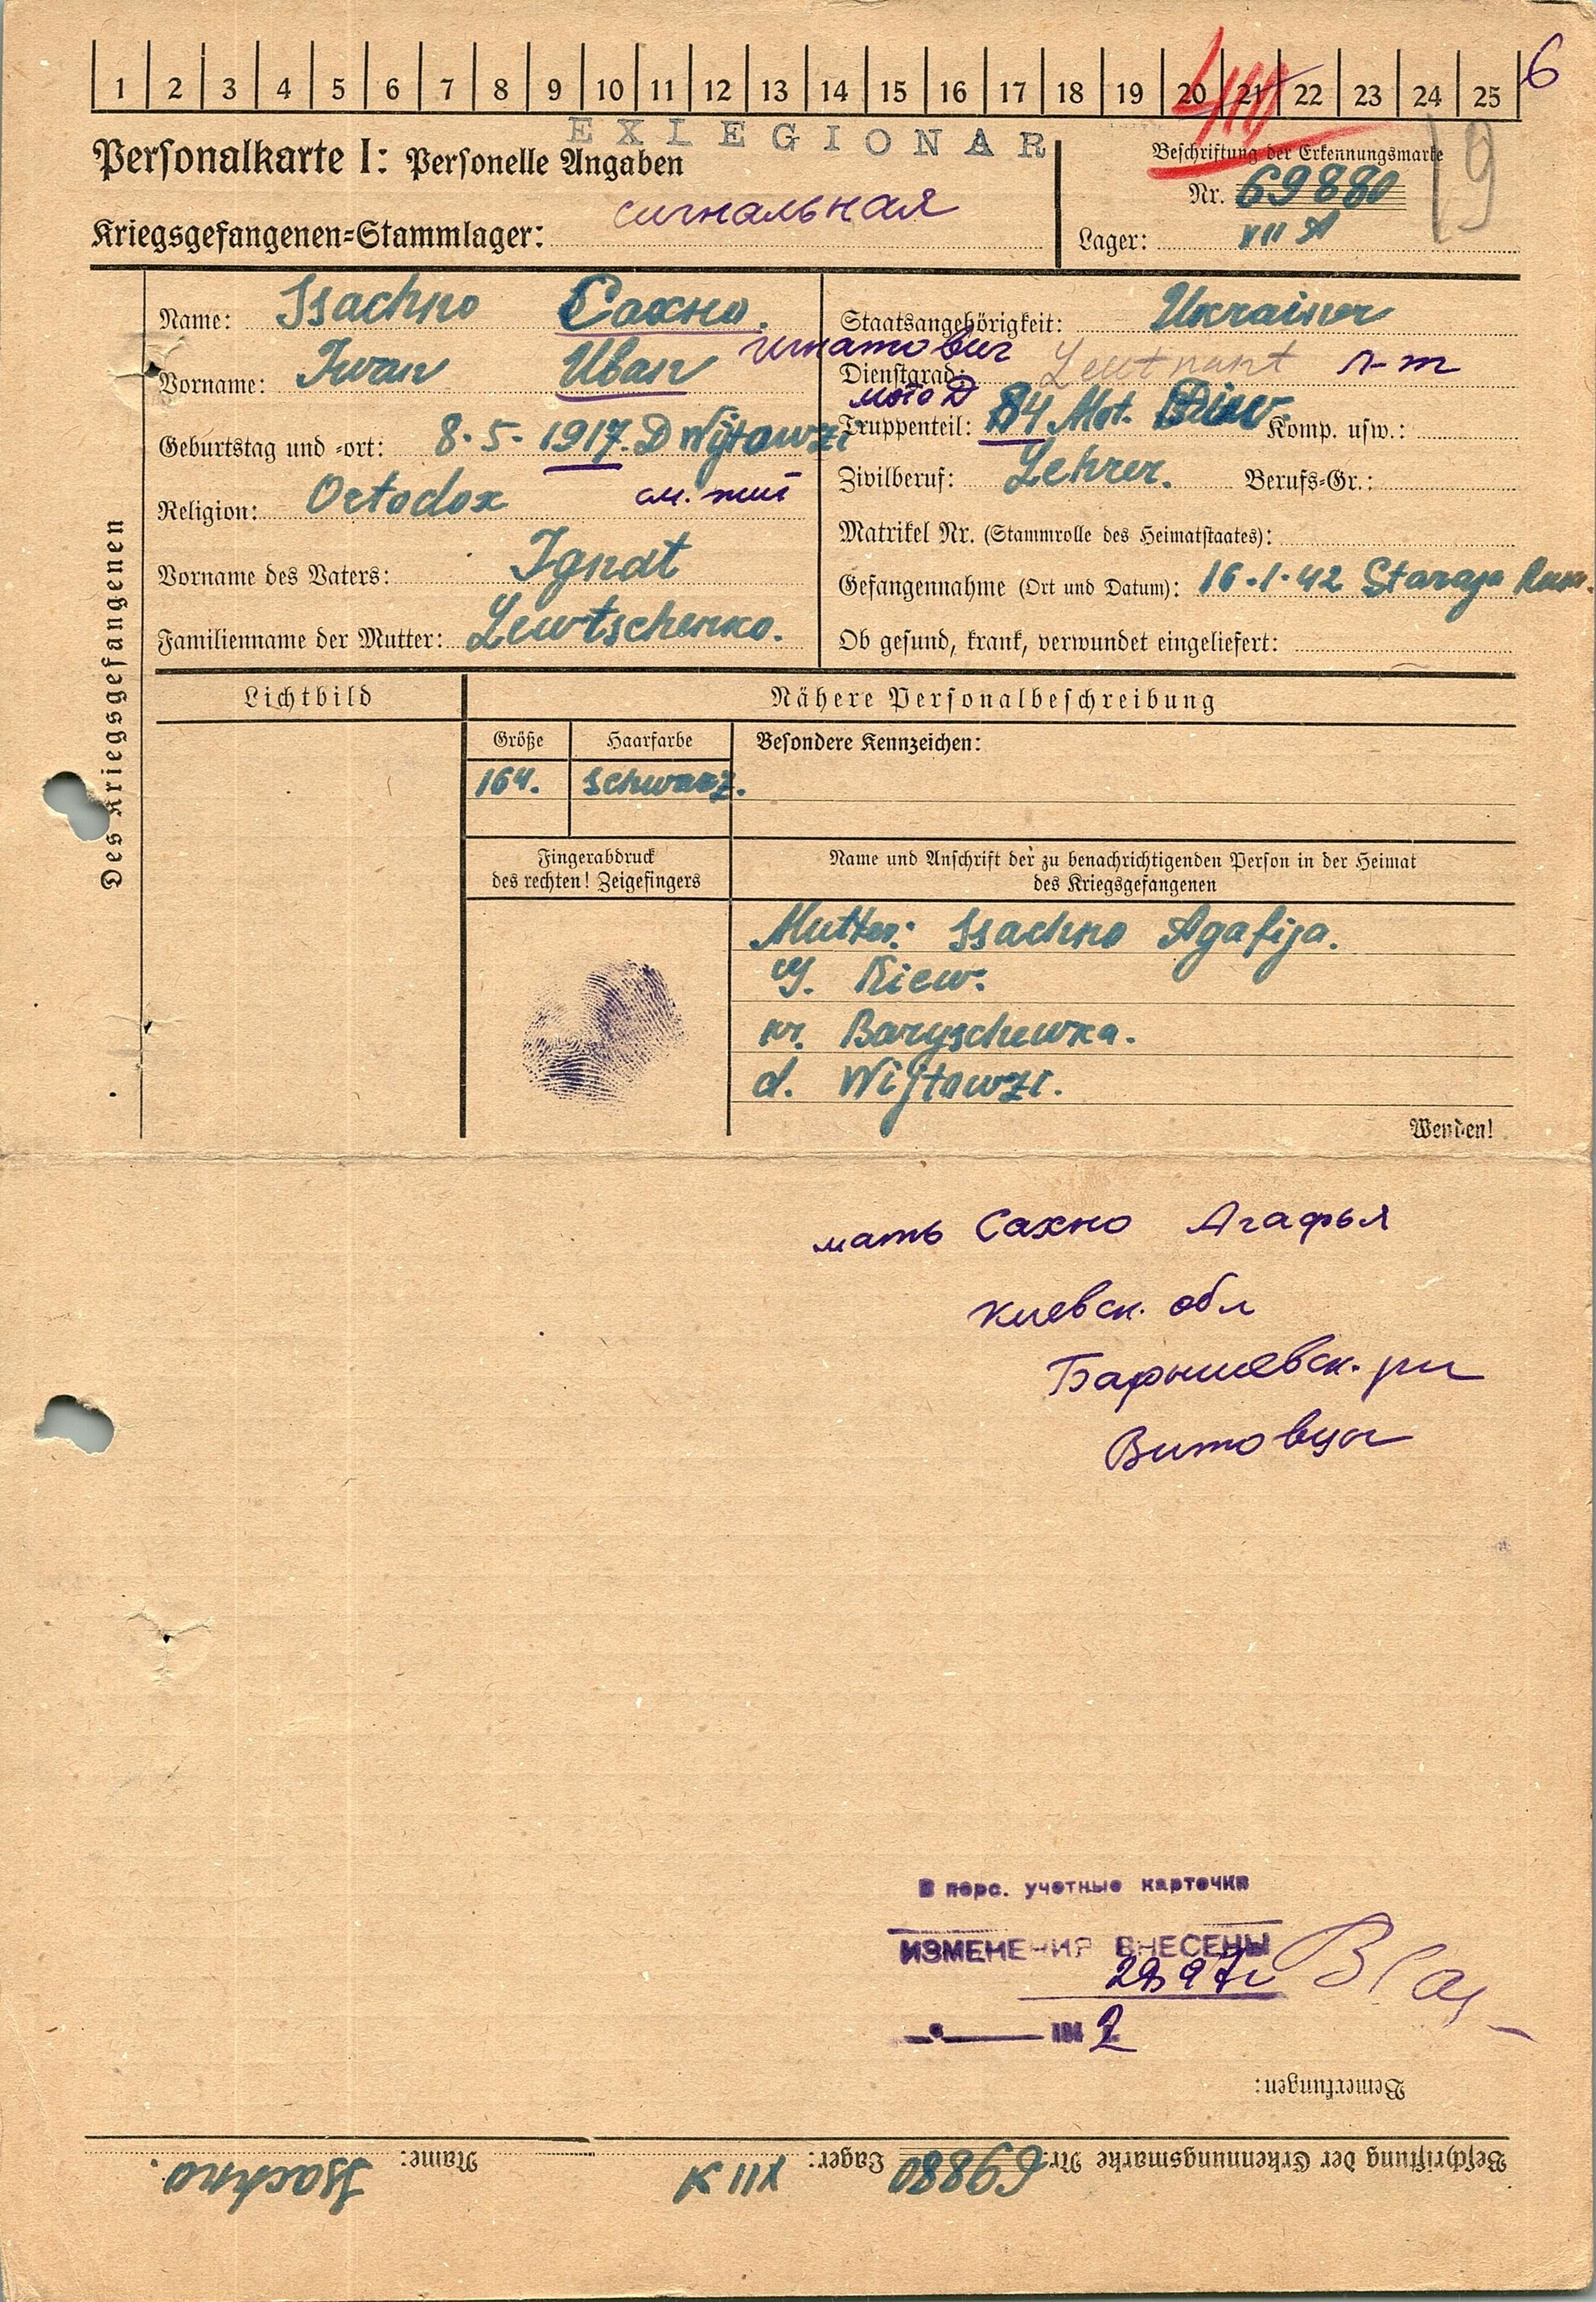 1 2 3 4 5 6 7 8 9 10 11 12 13 14 15 16 17 18 19 20 21 22 23 24 25 6
EXLEGIONAR
Personalkarte I: Personelle Angaben
Beschriftung der Erkennungsmarke
Nr. 69880
19
сигнальная
Kriegsgefangenen-Stammlager:
Lager: VII A
Des Kriegsgefangenen
Name: Ssachno Сахно.
Vorname: Iwan Иван Игнатович
Geburtstag und -ort: 8.5.1917. D Wijtawzi
Religion: Ortodox см. тит
Vorname des Vaters: Ignat
Familienname der Mutter: Lewtschenko.
Staatsangehörigkeit: Ukrainer
Dienstgrad: Leutnant л-т
мото Д
Truppenteil: 84 Mot. Diw. Komp. usw.:
Zivilberuf: Lehrer. Berufs-Gr.:
Matrikel Nr. (Stammrolle des Heimatstaates):
Gefangennahme (Ort und Datum): 16.1.42 Staraja Russ.
Ob gesund, krank, verwundet eingeliefert:
Lichtbild
Nähere Personalbeschreibung
Größe Haarfarbe Besondere Kennzeichen:
164. schwarz.
Fingerabdruck
des rechten! Zeigefingers
Name und Anschrift der zu benachrichtigenden Person in der Heimat
des Kriegsgefangenen
Mutter: Ssachno Agafija.
G. Kiew.
kr. Baryschewka.
d. Wijtawzi.
Wenden!
мать Сахно Агафья
Киевск. обл
Барышевск. рн
Витовцы
В перс. учетные карточки
ИЗМЕНЕНИЯ ВНЕСЕНЫ
194 2
Bemerkungen:
Beschriftung der Erkennungsmarke Nr. 69880 Lager: VII A Name: Ssachno.